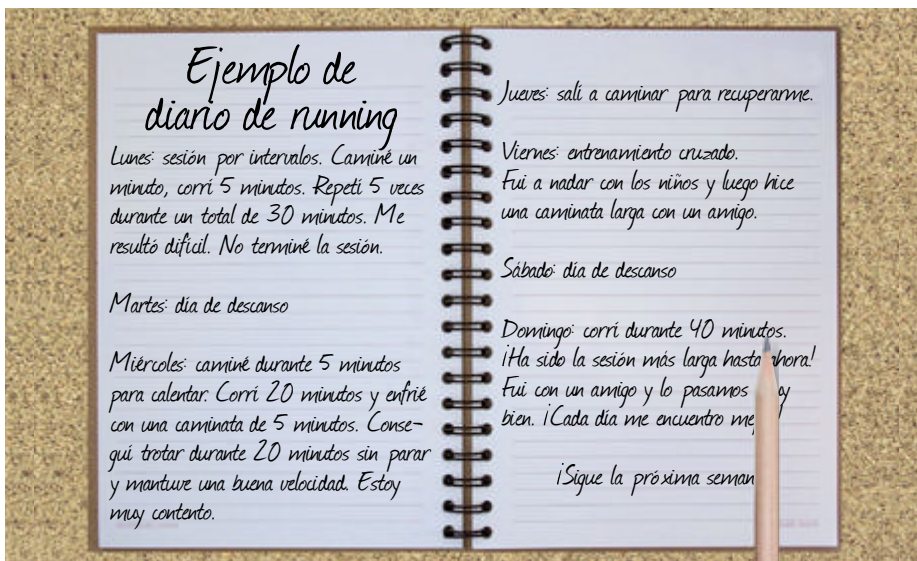 Ejemplo de
diario de running
Lunes: sesión por intervalos. Caminé un
minuto, corrí 5 minutos. Repetí 5 veces
durante un total de 30 minutos. Me
resultó difícil. No terminé la sesión.
Martes: día de descanso
Miércoles: caminé durante 5 minutos
para calentar. Corrí 20 minutos y enfrié
con una caminata de 5 minutos. Conse-
guí trotar durante 20 minutos sin parar
y mantuve una buena velocidad. Estoy
muy contento.
Jueves: salí a caminar para recuperarme.
Viernes: entrenamiento cruzado.
Fui a nadar con los niños y luego hice
una caminata larga con un amigo.
Sábado: día de descanso
Domingo: corrí durante 40 minutos.
¡Ha sido la sesión más larga hasta ahora!
Fui con un amigo y lo pasamos
bien. ¡Cada día me encuentro
¡Sigue la próxima